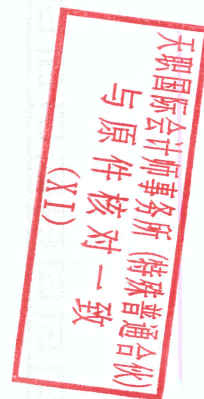 天职国际会计师事务所(特殊普通合伙)
与原件核对一致
(XI)